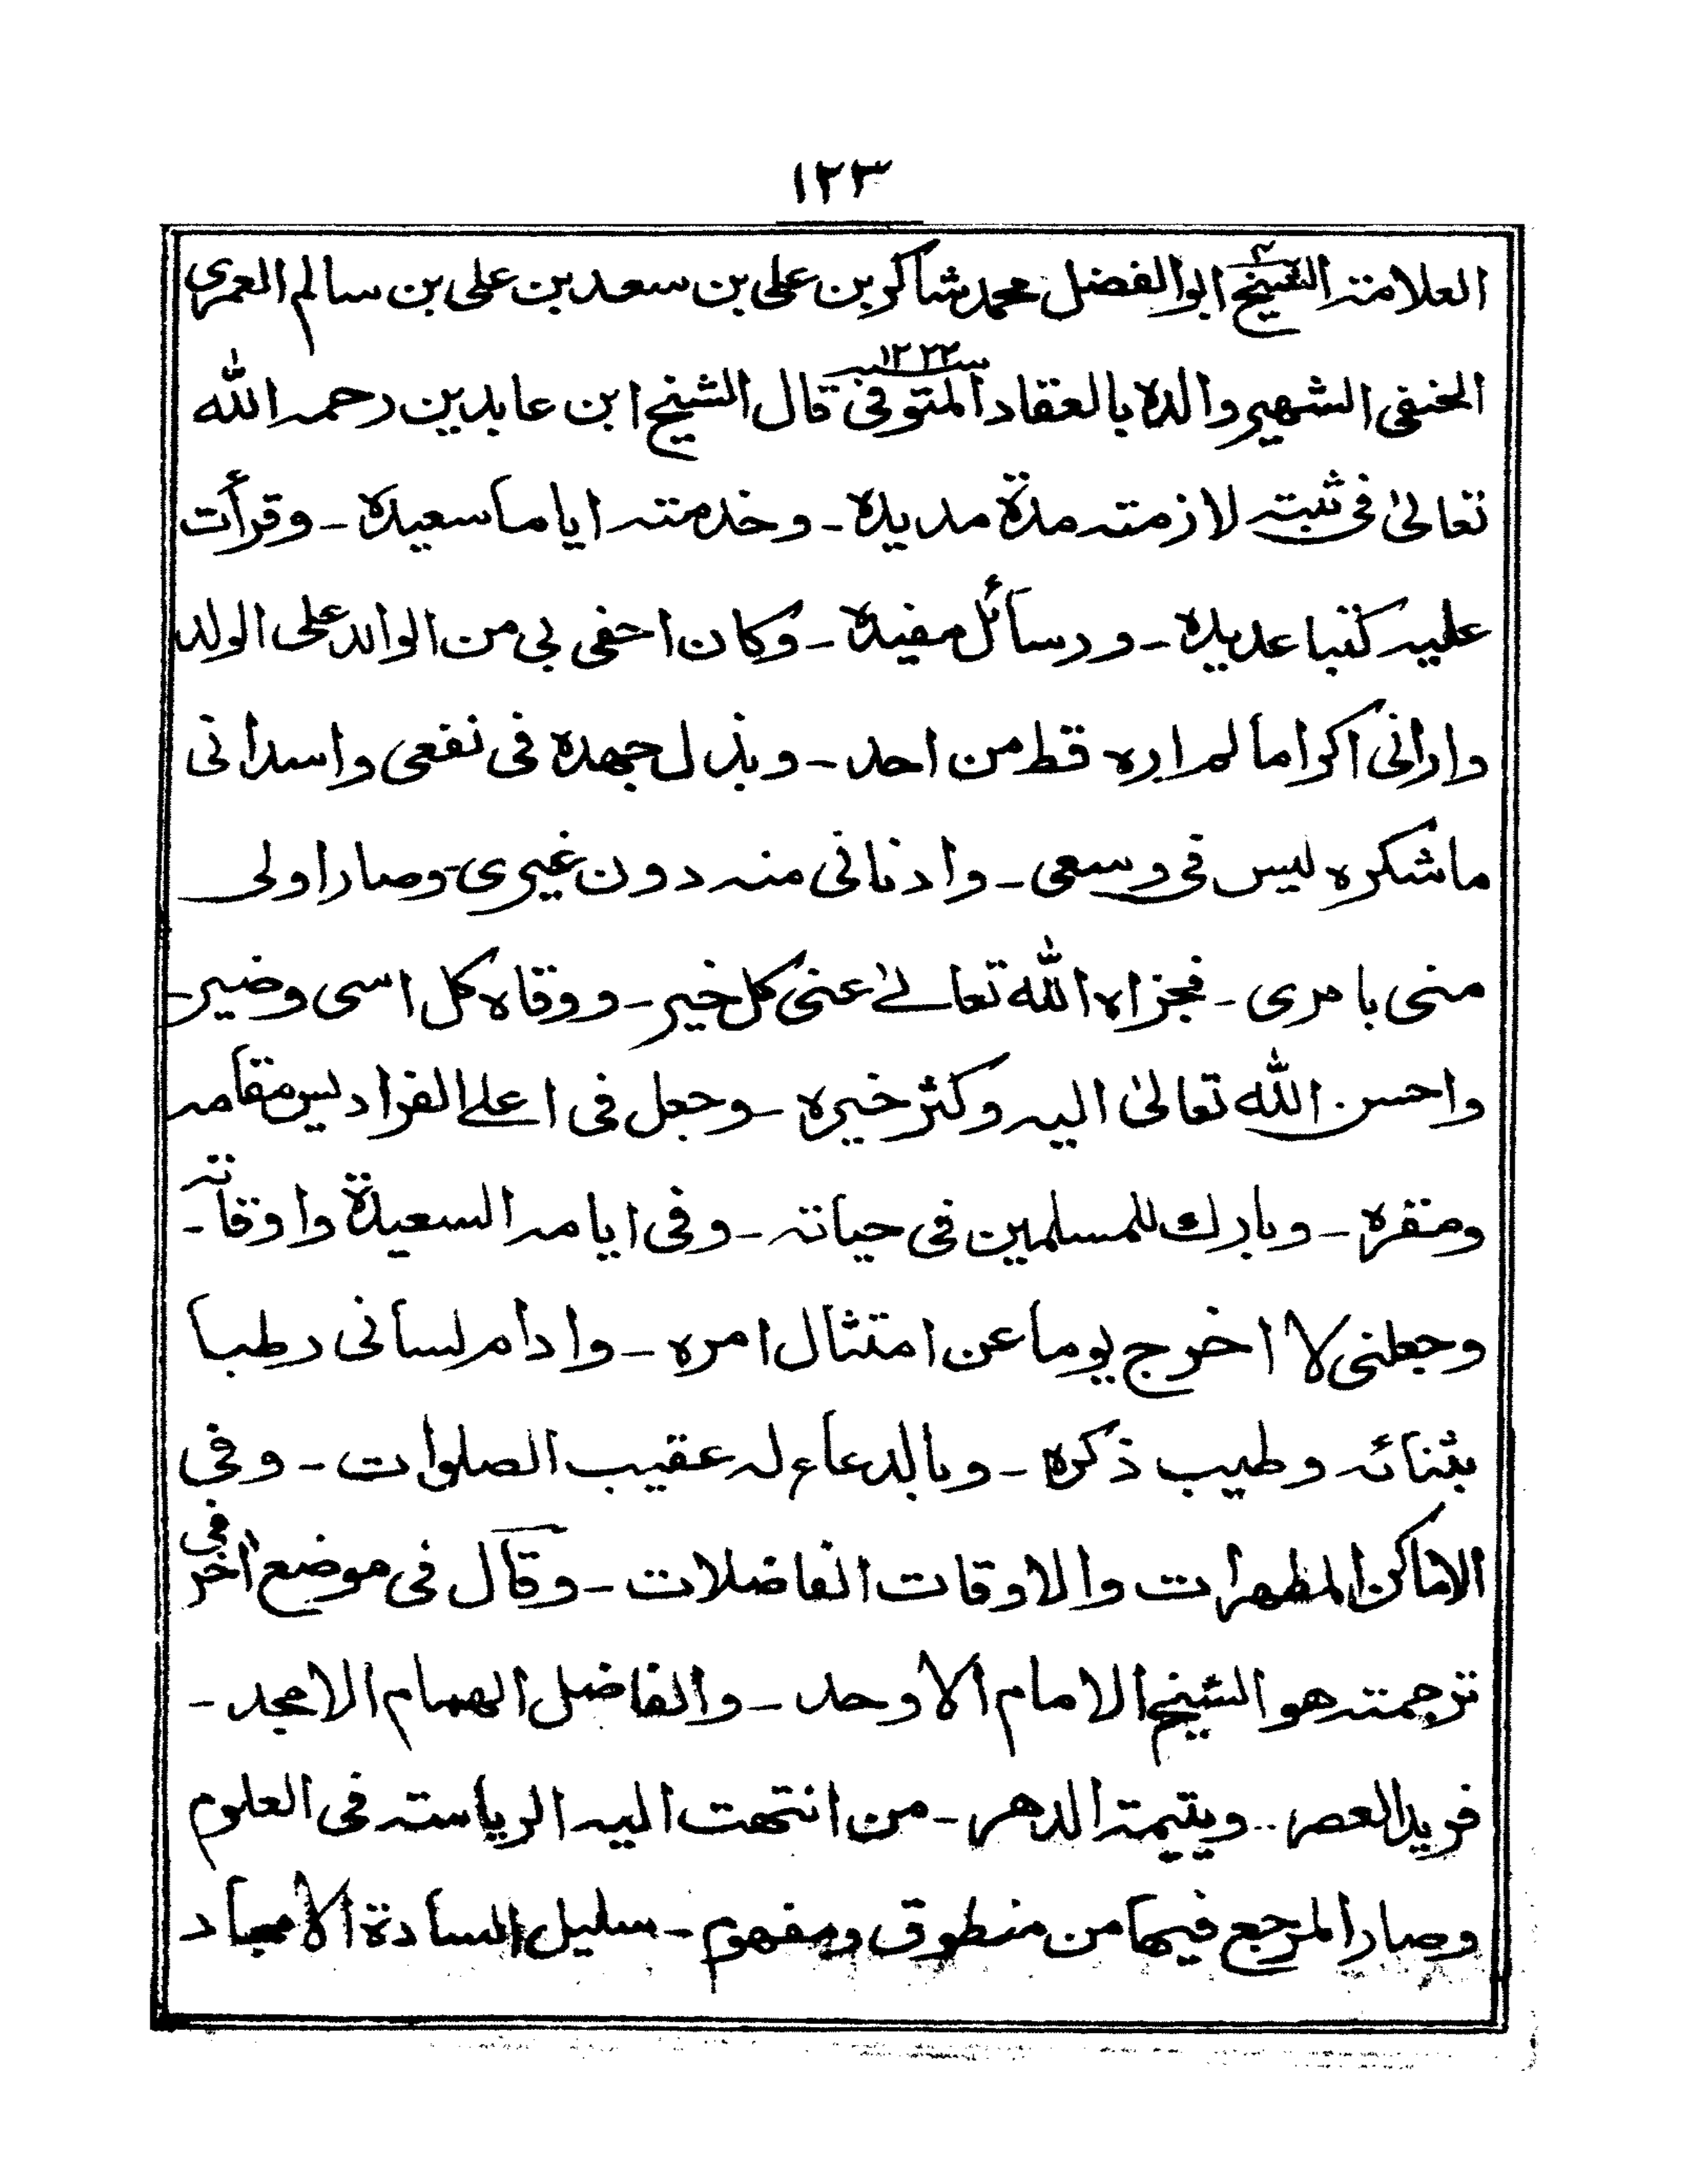 ١٢٣
العلامة الشيخ ابو الفضل محمد شاكر بن علي بن سعد بن علي بن سالم العمري
الحنفى الشهير والده بالعقاد المتوفى سنه ١٢٢٢ قال الشيخ ابن عابدين رحمه الله
تعالىٰ فى ثبته لازمته مدة مديدة - وخدمته اياما سعيدة - وقرأت
عليه كتبا عديدة - ورسائل مفيدة - وكان احفى بى من الوالد على الولد
وارانى اكراما لم اره قط من احد - وبذل جهده فى نفعى واسدانى
ما شكره ليس فى وسعى - وادنانى منه دون غيرى - وصار اولى
منى بامرى - فجزاه الله تعالىٰ عنى كل خير - ووقاه كل اسى وضير -
واحسن الله تعالىٰ اليه وكثر خيره - وجعل فى اعلى الفراديس مقامه
ومقره - وبارك للمسلمين فى حياته - وفى ايامه السعيدة واوقاته -
وجعلنى لا اخرج يوما عن امتثال امره - وادام لسانى رطبا
بثنائه وطيب ذكره - وبالدعاء له عقيب الصلوات - وفى
الاماكن المطهرات والاوقات الفاضلات - وقال فى موضع اخر فى
ترجمته هو الشيخ الامام الاوحد - والفاضل الهمام الامجد -
فريد العصر - ويتيمة الدهر - من انتهت اليه الرياسته فى العلوم
وصار المرجع فيها من منطوق ومفهوم - سليل السادة الامجاد